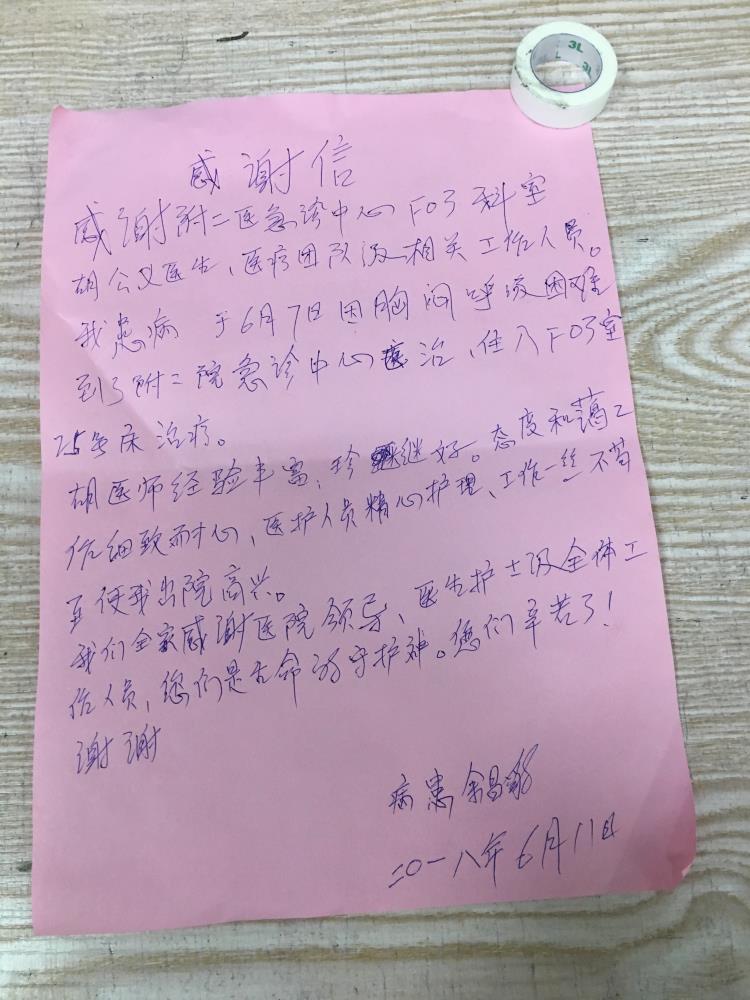 3L
3L
感谢信
感谢附二医急诊中心F03科室
胡公义医生、医疗团队及相关工作人员。
我患病 于6月7日因胸闷呼吸困难
到了附二院急诊中心 治,住入F03室
25号床治疗。
胡医师经验丰富、 继好。态度和蔼工
作细致耐心、医护人员精心护理、工作一丝不苟
使我出院高兴。
我们全家感谢医院领导、医生护士及全体工
作人员,您们是生命的守护神。您们辛苦了!
谢谢
病患 余昌
二〇一八年6月11日